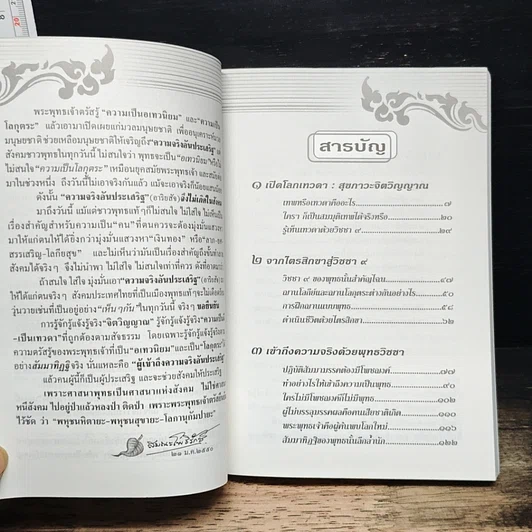 พระพุทธเจ้าตรัสรู้ "ความเป็นอเทวนิยม" และ "ความเป็น
โลกุตระ" แล้วเอามาเปิดเผยแก่มวลมนุษยชาติ เพื่ออนุเคราะห์
มนุษยชาติ ช่วยเหลือมนุษยชาติให้เจริญถึง "ความจริงอันประเสริฐ"
สังคมชาวพุทธในทุกวันนี้ ไม่สนใจว่า พุทธจะเป็น "อเทวนิยม"
ไม่สนใจ "ความเป็นโลกุตระ" เหมือนยุคสมัยพระพุทธเจ้า และสมัย
มาในช่วงหนึ่ง ถึงวันนี้ไม่เอาจริงกันแล้ว แม้จะเอาจริงก็น้อย
ดังนั้น "ความจริงอันประเสริฐ" (อาริยสัจ) จึงไม่เกิด
มาถึงวันนี้ แม้แต่ชาวพุทธแท้ๆก็ไม่สนใจ ไม่ใส่ใจ ไม่เห็น
ความสำคัญว่า เกิดมาเป็น "คน" ที่ตนควรจะต้องมุ่งมั่น
มาให้แก่ตนให้ได้ยิ่งกว่ามุ่งมั่นแสวงหา "เงินทอง" หรือ "ลาภ-ยศ
สรรเสริญ-โลกียสุข" และไม่เห็นว่ามันเป็นเรื่องสำคัญถึงขั้น
สังคมได้จริงๆ จึงไม่นำพา ไม่ใส่ใจ ไม่สนใจเท่าที่ควร
ถ้าสนใจ ใส่ใจ มุ่งมั่นเอา "ความจริงอันประเสริฐ"
ให้ได้แก่ตนจริงๆ สังคมประเทศไทยที่เป็นเมืองพุทธแท้ๆ
วุ่นวายเช่นที่เป็นอยู่อย่าง "เห็นๆกัน" ในทุกวันนี้ จริงๆ
การรู้จักรู้แจ้งรู้จริง "จิตวิญญาณ" รู้จักรู้แจ้งรู้จริง
-เป็นเทวดา" ที่ถูกต้องตามสัจธรรม โดยเฉพาะรู้จักรู้แจ้งรู้จริง
ความตรัสรู้ของพระพุทธเจ้าที่เป็น "อเทวนิยม" และเป็น "โลกุตระ"
อย่างสัมมาทิฏฐิจริง นั่นแหละคือ "ผู้เข้าถึงความจริงอันประเสริฐ"
แล้วคนผู้นี้ก็เป็นผู้ประเสริฐ และจะช่วยสังคมให้ประเสริฐ
เพราะศาสนาพุทธเป็นศาสนาแห่งสังคม ไม่ใช่ศาสนา
หนีสังคม ไปอยู่ป่าแล้วหลงป่า ติดป่า เพราะพระพุทธเจ้าตรัส
ไว้ชัด ว่า "พหุชนหิตายะ-พหุชนสุขายะ-โลกานุกัมปายะ"
๒๑ ม.ค. ๒๕๕๐
สารบัญ
๑ เปิดโลกเทวดา : สุขภาวะจิตวิญญาณ
เทพหรือเทวดาคืออะไร ๗
ใครๆ ก็เป็นสมมุติเทพได้จริงหรือ ๒๐
รู้เห็นเทวดาด้วยวิชชา ๙ ๒๙
๒ จากไตรสิกขาสู่วิชชา ๙
วิชชา ๙ ของพุทธนั้นสำคัญไฉน ๔๗
ฌานโลกีย์และฌานโลกุตระต่างกันอย่างไร ๕๐
การฝึกฌานแบบพุทธ ๕๘
ดำเนินชีวิตด้วยไตรสิกขา ๖๒
๓ เข้าถึงความจริงด้วยพุทธวิชชา
ปฏิบัติสัมมามรรคต้องมีโพชฌงค์ ๗๗
ทำอย่างไรให้เข้าถึงความเป็นพุทธ ๙๐
ใครไม่มีโพชฌงค์ก็ไม่มีพุทธ ๑๐๖
ผู้ไม่บรรลุมรรคผลคือคนเสียชาติเกิด ๑๑๐
พระพุทธเจ้าคือผู้ค้นพบโลกใหม่ ๑๑๖
สัมมาทิฏฐิของพุทธนั้นลึกล้ำนัก ๑๒๒